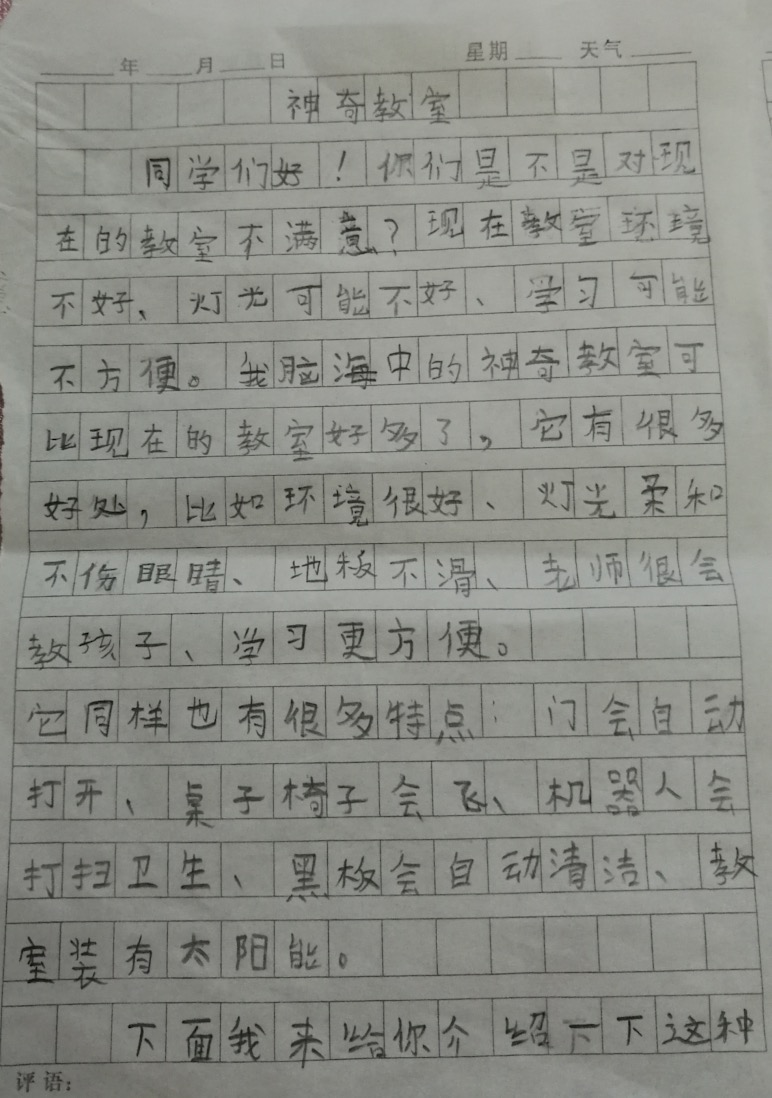 ____年____月____日 星期____ 天气____
神奇教室
同学们好！你们是不是对现
在的教室不满意？现在教室环境
不好、灯光可能不好、学习可能
不方便。我脑海中的神奇教室可
比现在的教室好多了，它有很多
好处，比如环境很好、灯光柔和
不伤眼睛、地板不滑、老师很会
教孩子、学习更方便。
它同样也有很多特点：门会自动
打开、桌子椅子会飞、机器人会
打扫卫生、黑板会自动清洁、教
室装有太阳能。
下面我来给你介绍一下这种
评语：